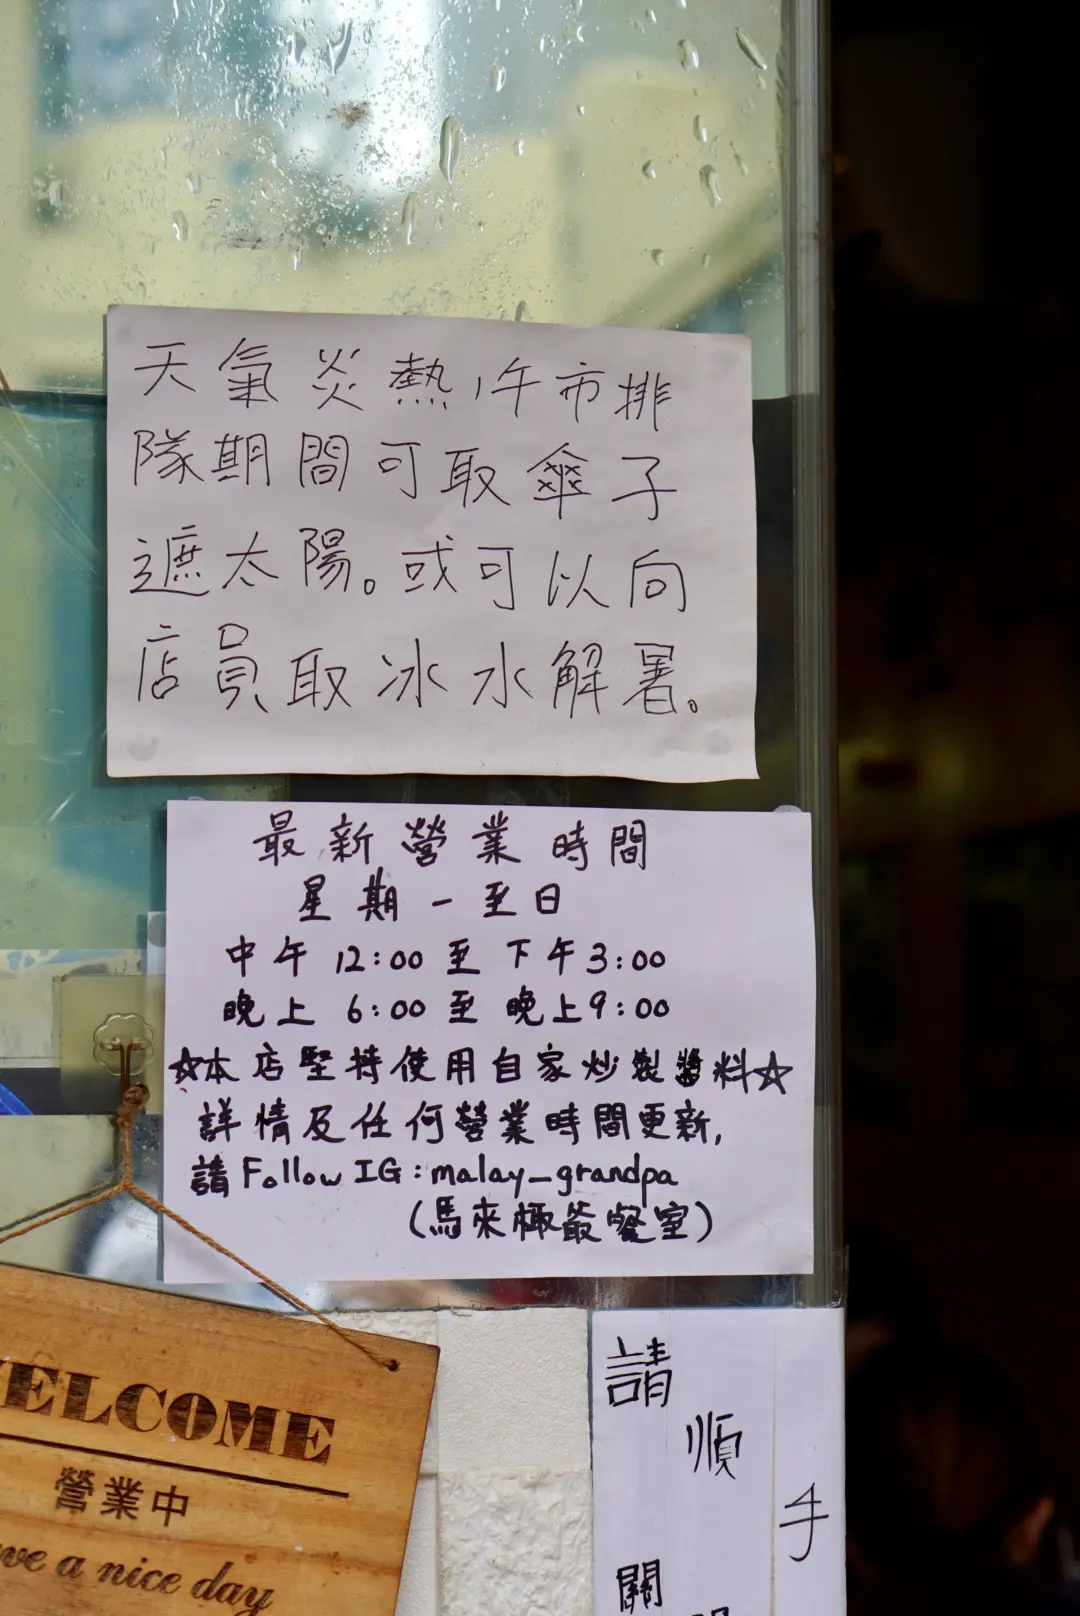 天氣炎熱,午市排
隊期間可取傘子
遮太陽。或可以向
店員取冰水解署。
最新營業時間
星期一至日
中午 12:00 至下午3:00
晚上 6:00 至 晚上9:00
☆本店堅持使用自家炒製醬料☆
詳情及任何營業時間更新,
請 Follow IG:malay_grandpa
(馬來極爺餐室)
ELCOME
營業中
ve a nice day
請
順
手
關